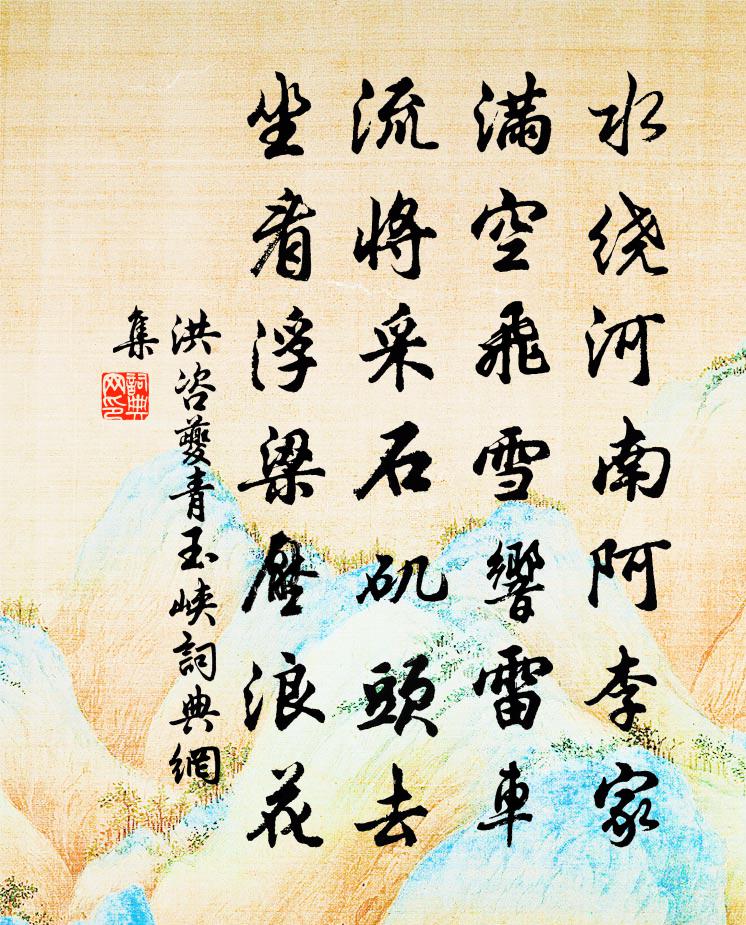 水绕河南阿李家
满空飛雪響雷車
流将采石矶頭去
坐看浮梁壓浪花
洪咨夔青玉峡詞典網
集
詞典
网印